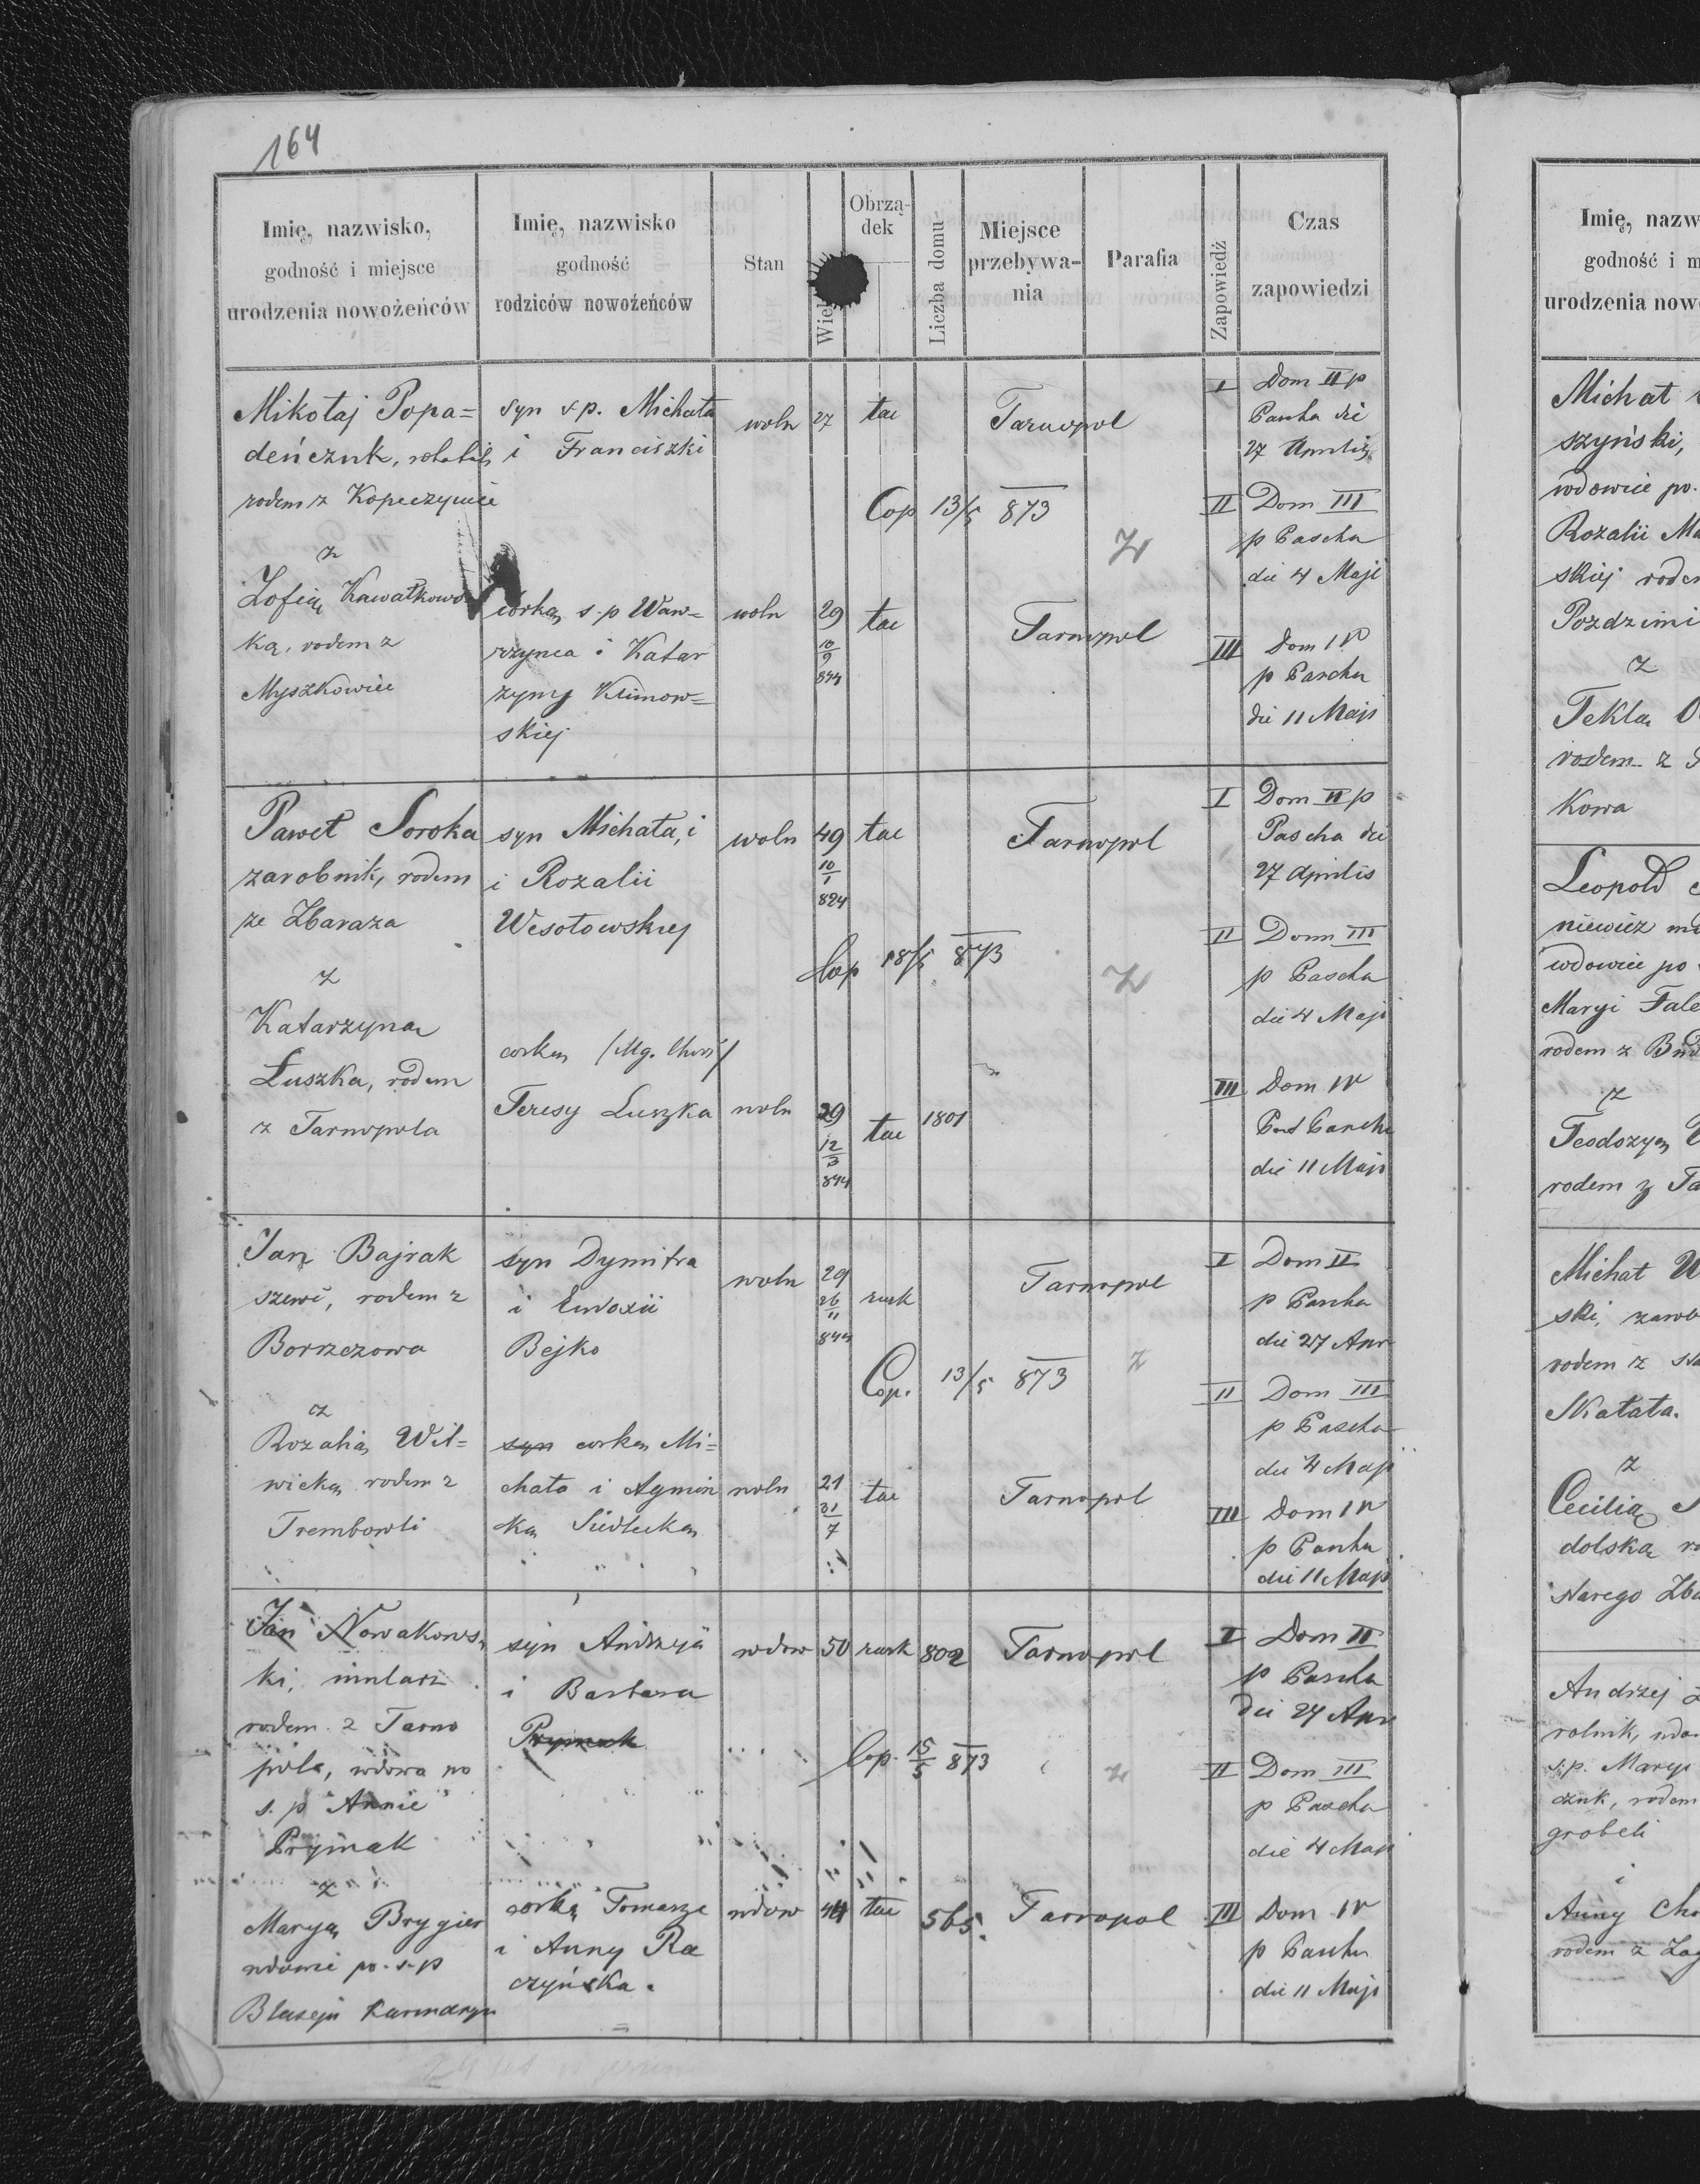 164
Imię, nazwisko,
godność i miejsce
urodzenia nowożeńców
Imię, nazwisko
godność
rodziców nowożeńców
Stan
Wiek
Obrzą-
dek
Liczba domu
Miejsce
przebywa-
nia
Parafia
Zapowiedź
Czas
zapowiedzi
Mikołaj Popa=
deńczuk,
rodem z Kopeczyniec
z
Zofią Kawałkows
ką, rodem z
Myszkowiec
syn s p. Michała
i Franciszki
córką s. p Waw=
rzyńca i Katar
zyny Klimow=
skiej
woln 27 łac Tarnopol
Cop 13/5 873
Z
woln 29 łac Tarnopol
10
9
844
I Dom II p
Pascha die
27 Aprilis
II Dom III
p Pascha
die 4 Maji
III Dom IV
p Pascha
die 11 Maji
Paweł Soroka
zarobnik, rodem
ze Zbaraża
z
Katarzyna
Łuszka, rodem
z Tarnopola
syn Michała, i
i Rozalii
Wesołowskiej
corka
Teresy Luszka
woln 49 łac Tarnopol
10
1
824
Cop 18/5 873
Z
woln 29 łac 1801
12
3
844
I Dom II p
Pascha die
27 Aprilis
II Dom III
p Pascha
die 4 Maji
III Dom IV
Post Pascha
die 11 Maji
Jan Bajrak
szewc, rodem z
Borszczowa
z
Rozalią Wil=
wicką rodem z
Trembowli
syn Dymitra
i Eudoxii
Bejko
syn corka Mi=
chała i Agnisz
ka Siedlecka
woln 29 rusk Tarnopol
26
11
844
Cop. 13/5 873
z
woln 21 łac Tarnopol
31
7
I Dom II
p Pascha
die 27 Apr
II Dom III
p Pascha
die 4 Maji
III Dom IV
p Pascha
die 11 Maji
Jan Nowakows
ki, mularz
rodem z Tarno
pola, wdowa po
s. p Annie
Prymak
z
Maryą Brygier
wdowie po s. p
Błażeju
syn Andrzeja
i Barbara
Prymak
corką Tomasza
i Anny Ra
czyńska.
wdow 50 rusk 802 Tarnopol
Cop. 15/5 873
z
wdow 44 łac 565. Tarnopol
I Dom II
p Pascha
die 27 Apr
II Dom III
p Pascha
die 4 Maji
III Dom IV
p Pascha
die 11 Maji
Imię, nazw
godność i m
urodzenia nowo
Michał
szyński,
wdowiec po
Rozalii Ma
skiej rodem
z
Tekla
rodem z
kowa
Leopold
niewicz
wdowiec po
Maryi Fale
rodem z
z
Teodozyą
rodem z Ta
Michał W
ski, zarob
rodem z
Skałata.
z
Cecilią
dolska
starego Zba
Andrzej
rolnik, wdo
s. p. Maryi
czuk, rodem
grobeli
i
Anny Cho
rodem z Zag